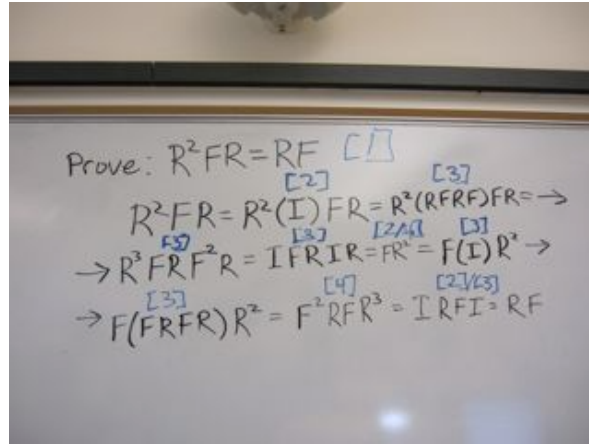 Prove: R²FR=RF [1]
[2] [3]
R²FR = R²(I)FR = R²(RFRF)FR= →
[3] [3] [2/4] [3]
→ R³FRF²R = IFRIR = FR² = F(I)R² →
[3] [4] [2]/[3]
→ F(FRFR)R² = F²RFR³ = IRFI = RF